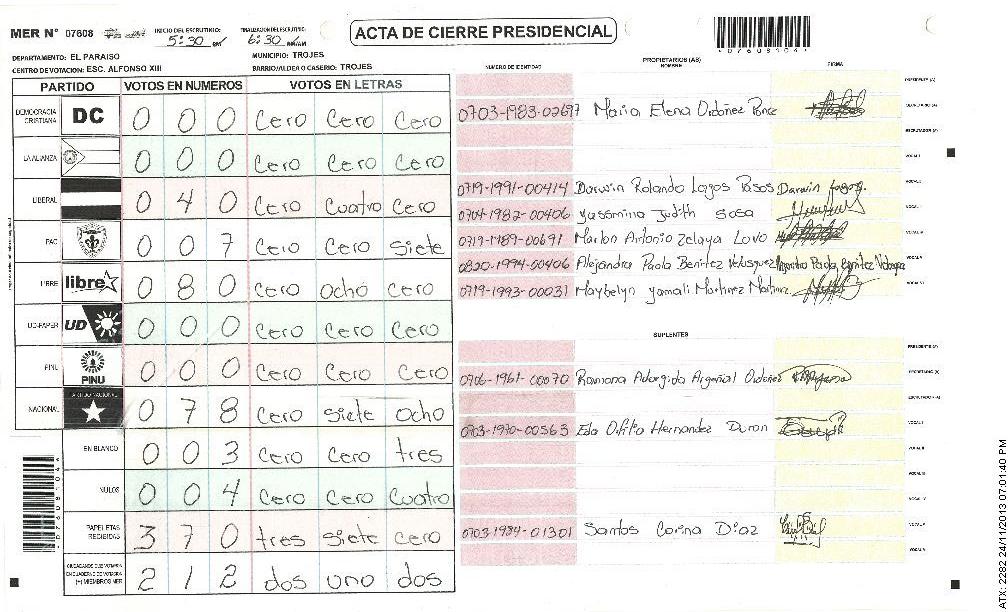 MER N° 07608 INICIO DEL ESCRUTINIO: 5:30 PM FINALIZACION DEL ESCRUTINIO: 6:30 PM/AM
ACTA DE CIERRE PRESIDENCIAL
07608104
DEPARTAMENTO: EL PARAISO MUNICIPIO: TROJES
CENTRO DE VOTACION: ESC. ALFONSO XIII BARRIO/ALDEA O CASERIO: TROJES
PARTIDO VOTOS EN NUMEROS VOTOS EN LETRAS
DEMOCRACIA CRISTIANA DC 0 0 0 Cero Cero Cero
LA ALIANZA 0 0 0 Cero Cero Cero
LIBERAL 0 4 0 Cero Cuatro Cero
PAC 0 0 7 Cero Cero Siete
LIBRE libre 0 8 0 Cero ocho Cero
UD-PAPER UD 0 0 0 Cero Cero Cero
PINU PINU 0 0 0 Cero Cero Cero
NACIONAL PARTIDO NACIONAL 0 7 8 Cero Siete ocho
EN BLANCO 0 0 3 Cero Cero tres
NULOS 0 0 4 Cero Cero Cuatro
PAPELETAS RECIBIDAS 3 7 0 tres Siete cero
CIUDADANOS QUE VOTARON EN CUADERNO DE VOTACION (+) MIEMBROS MER 2 1 2 dos uno dos
PROPIETARIOS (AS)
NUMERO DE IDENTIDAD NOMBRE FIRMA
PRESIDENTE (A)
0703-1983-02697 Maria Elena Ordoñez Ponce SECRETARIO (A)
ESCRUTADOR (A)
VOCAL I
0719-1991-00414 Darwin Rolando Lagos Pasos Darwin lagos.
0704-1982-00406 Yassmina Judith Sosa
0719-1989-00691 Marlon Antonio Zelaya Lovo
0820-1994-00406 Alejandra Paola Benitez Velasquez
0719-1993-00031 Maybelyn Yamali Martinez Martinez
SUPLENTES
PRESIDENTE (A)
0706-1961-00070 Ramona Adargida Argeñal Ordoñez SECRETARIO (A)
ESCRUTADOR (A)
0703-1970-00563 Eda Ofilia Hernandez Duron VOCAL I
VOCAL II
VOCAL III
VOCAL IV
0703-1984-01301 Santos Corina Diaz VOCAL V
ATX: 2282 24/11/2013 07:01:40 PM